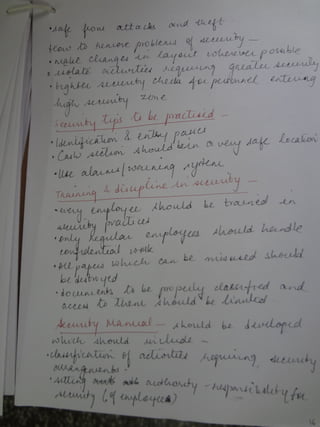 • safe from attacks and theft
How to remove problems of security –
• Make changes in layout wherever possible
• isolate activities requiring greater security
• tighter security checks for personnel entering
high security zone
Security tips to be practised –
• Identification & entry passes
• Cash section should be in a very safe location
• Use alarms/warning system
Training & discipline in security –
• every employee should be trained in
security practices
• only regular employees should handle
confidential work
• All papers which can be misused should
be destroyed
• documents to be properly classified and
access to them should be limited.
Security Manual – should be developed
which should include –
• classification of activities requiring security
arrangements.
• setting authority – responsibility for
security (of employees)
16